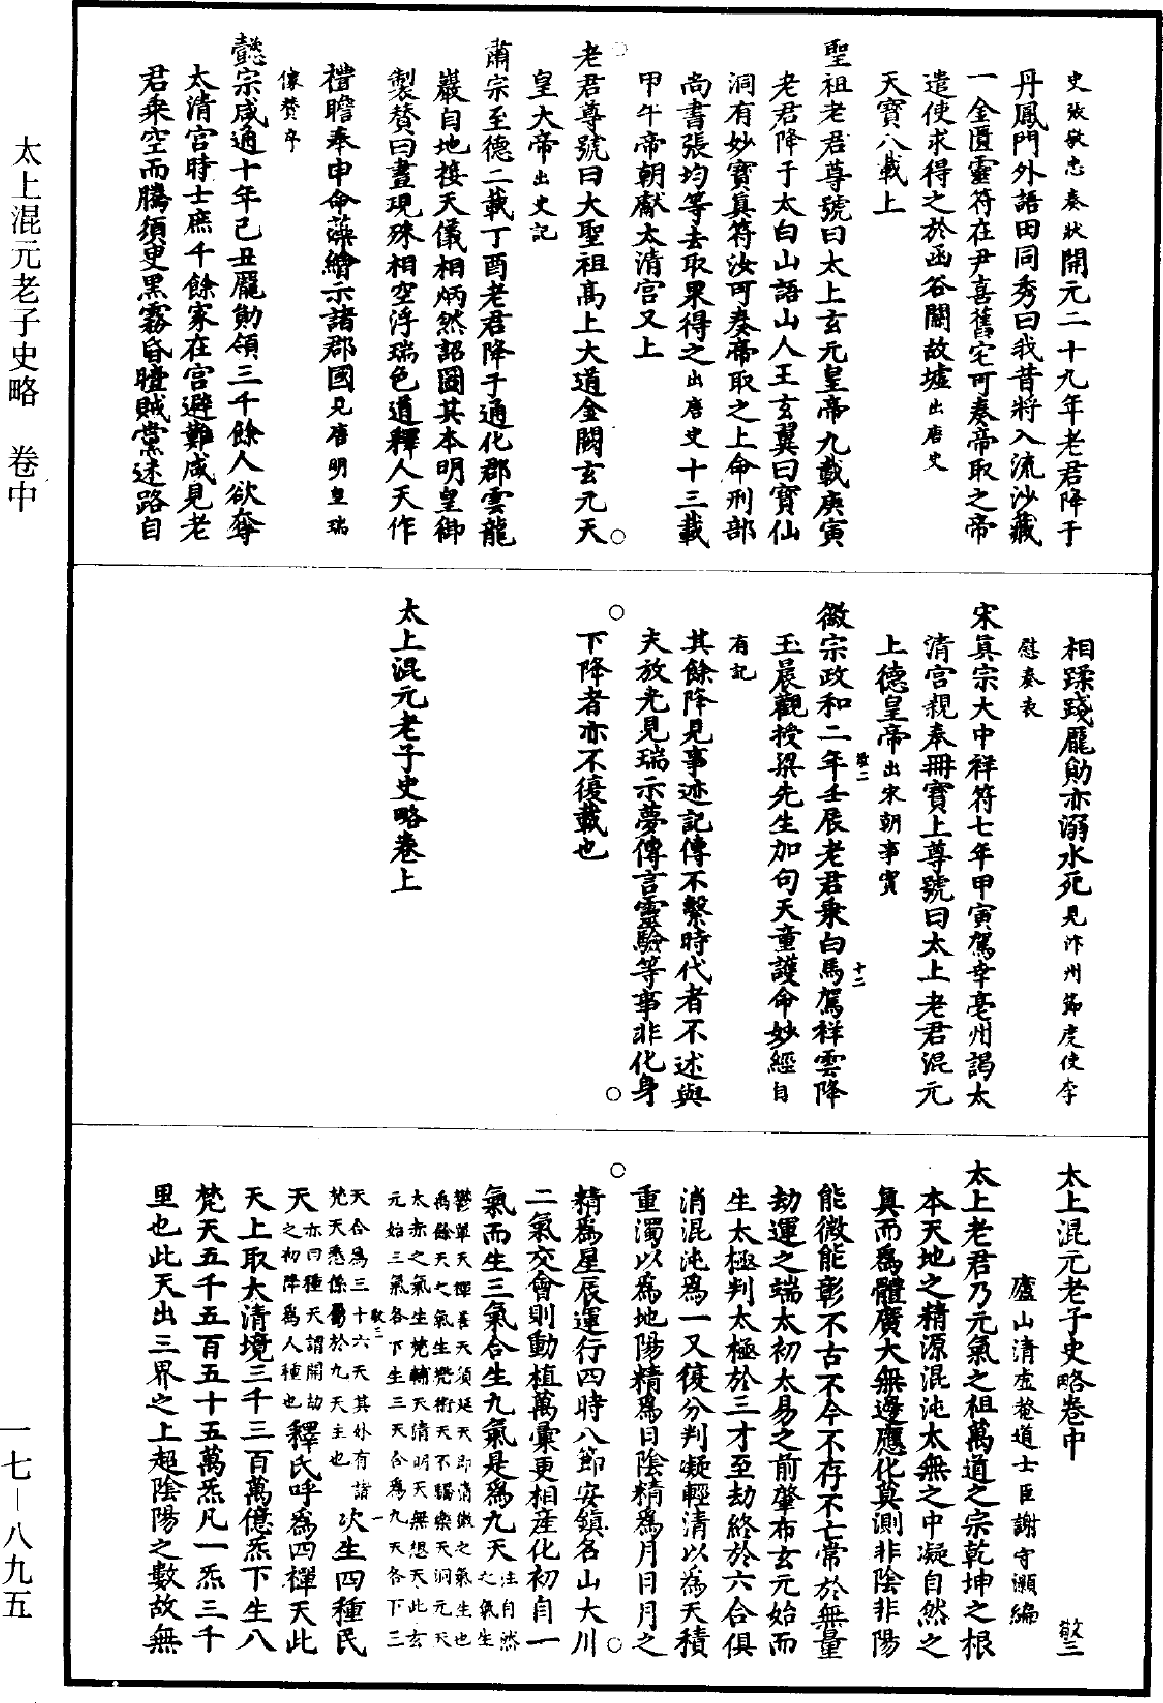 太上混元老子史略　卷中
一七—八九五
史張敬忠奏狀開元二十九年老君降于
丹鳳門外語田同秀曰我昔將入流沙藏
一金匱靈符在尹喜舊宅可奏帝取之帝
遣使求得之於函谷關故墟出唐史
天寶八載上
聖祖老君尊號曰太上玄元皇帝九載庚寅
老君降于太白山語山人王玄翼曰寶仙
洞有妙寶真符汝可奏帝取之上命刑部
尚書張均等去取果得之出唐史十三載
甲午帝朝獻太清宮又上
老君尊號曰大聖祖高上大道金闕玄元天
皇大帝出史記
肅宗至德二載丁酉老君降于通化郡雲龍
巖自地接天儀相炳然詔圖其本明皇御
製贊曰晝現殊相空浮瑞色道釋人天作
禮瞻奉申命藻繪示諸郡國見唐明皇瑞
像贊序
懿宗咸通十年己丑龐勛領三千餘人欲奪
太清宮時士庶千餘家在宮避難咸見老
君乘空而騰須臾黑霧昏曀賊黨迷路自
相蹂踐龐勛亦溺水死見汴州節度使李
慰奏表
宋真宗大中祥符七年甲寅駕幸亳州謁太
清宮親奉冊寶上尊號曰太上老君混元
上德皇帝出宋朝事實
徽宗政和二年壬辰老君乘白馬駕祥雲降
敬二
十二
玉晨觀授梁先生加句天童護命妙經自
有記
其餘降見事迹記傳不繫時代者不述與
夫放光見瑞示夢傳言靈驗等事非化身
下降者亦不復載也
太上混元老子史略卷上
太上混元老子史略卷中
敬三
廬山清虛菴道士臣謝守灝編
太上老君乃元氣之祖萬道之宗乾坤之根
本天地之精源混沌太無之中凝自然之
真而為體廣大無邊應化莫測非陰非陽
能微能彰不古不今不存不亡常於無量
劫運之端太初太易之前肇布玄元始而
生太極判太極於三才至劫終於六合俱
消混沌為一又復分判凝輕清以為天積
重濁以為地陽精為日陰精為月日月之
精為星辰運行四時八節安鎮名山大川
二氣交會則動植萬彙更相產化初自一
氣而生三氣合生九氣是為九天注自然之氣生
鬱單天禪善天須延天即清微之氣生也
禹餘天之氣生㜸術天不驕樂天洞元天
太赤之氣生梵輔天清明天無想天此玄
元始三氣各下生三天合為九天各下三
天合為三十六天其外有諸
梵天悉係屬於九天主也
敬三
一
次生四種民
天亦曰種天謂開劫之初降為人種也釋氏呼為四禪天此
天上取大清境三千三百萬億炁下生八
梵天五千五百五十五萬炁凡一炁三千
里也此天出三界之上超陰陽之數故無